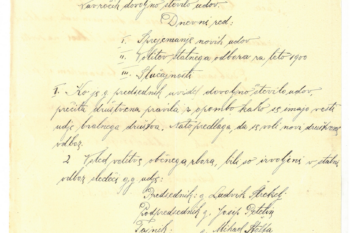 navzočih dovoljno število udov.
Dnevni red:
I. Sprejemanje novih udov
II. Volitev stalnega odbora za leto 1900
III. Slučajnosti
1. Ko je g. predsednik dovoljno število udov,
prečita društvena pravila z opombo kako se imajo vesti
udje bralnega društva, nato predlaga, da se voli novi društveni
odbor.
2. Vsled volitve občnega zbora, bili so izvoljeni v stalni
odbor sledeči g.g. udje:
Predsednik: g. Ludovik
Podpredsednik g. Josip Petelin
Tajnik: " Mihael